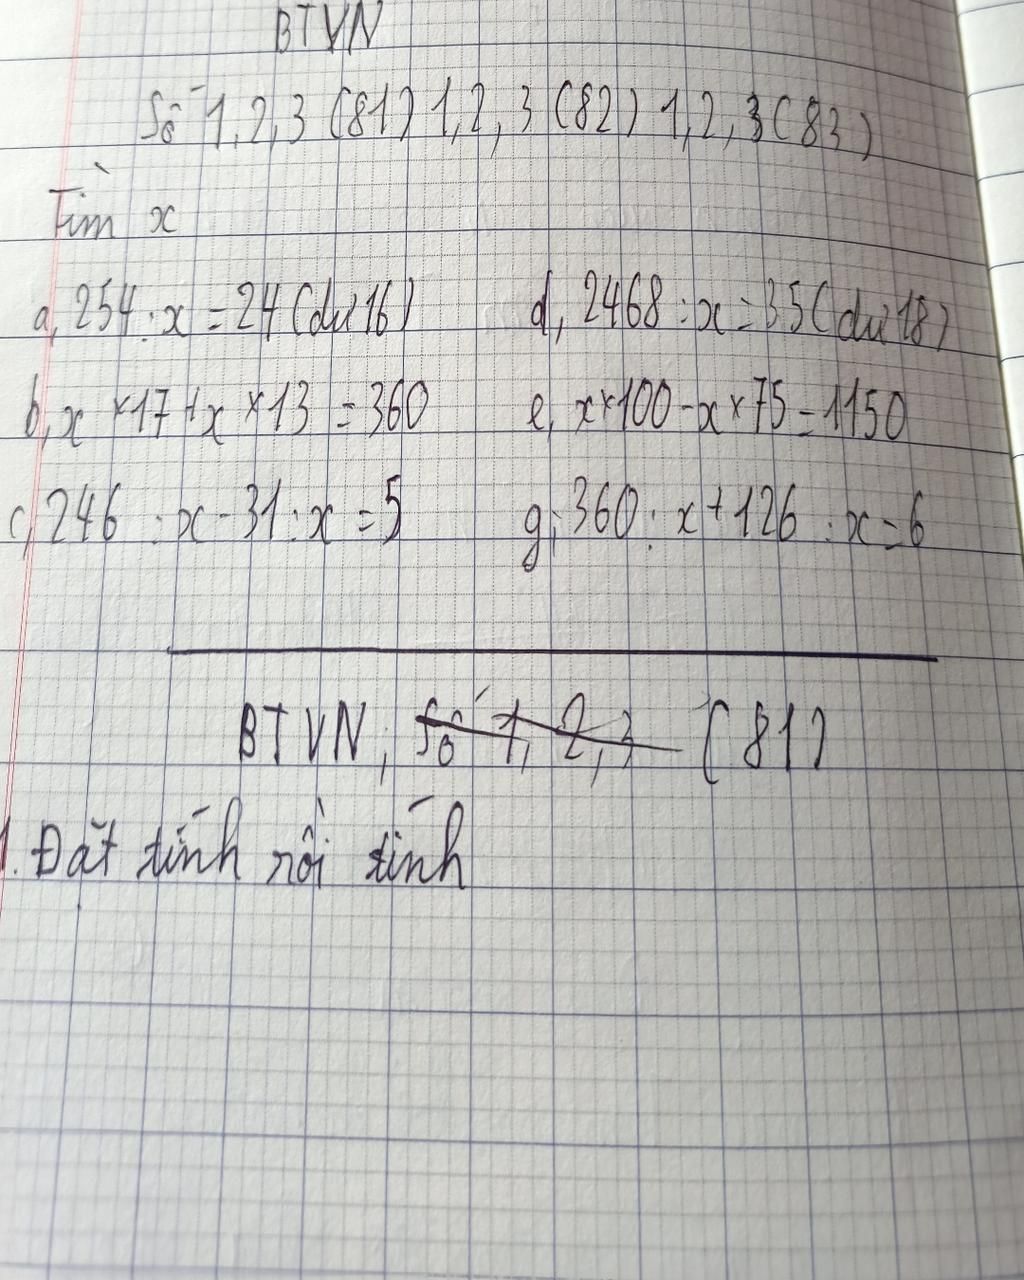 BTVN
Số 1,2,3 (81) 1,2,3 (82) 1,2,3 (83)
Tìm x
a, 254 : x = 24 (dư 16)
d, 2468 : x = 35 (dư 18)
b, x × 17 + x × 13 = 360
e, x × 100 - x × 75 = 1150
c, 246 : x - 31 : x = 5
g, 360 : x + 126 : x = 6
BTVN, Số 1, 2, 3 (81)
1. Đặt tính rồi tính